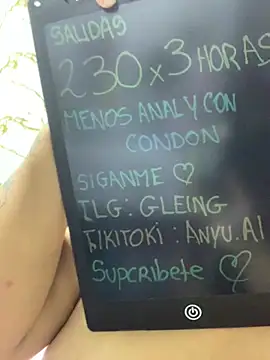 SALIDAS
230 x 3 HORAS
MENOS ANAL Y CON
CONDON
SIGANME ♡
ILG: GLEING
TIKITOKI: ANYU.AI
Supcribete ♡